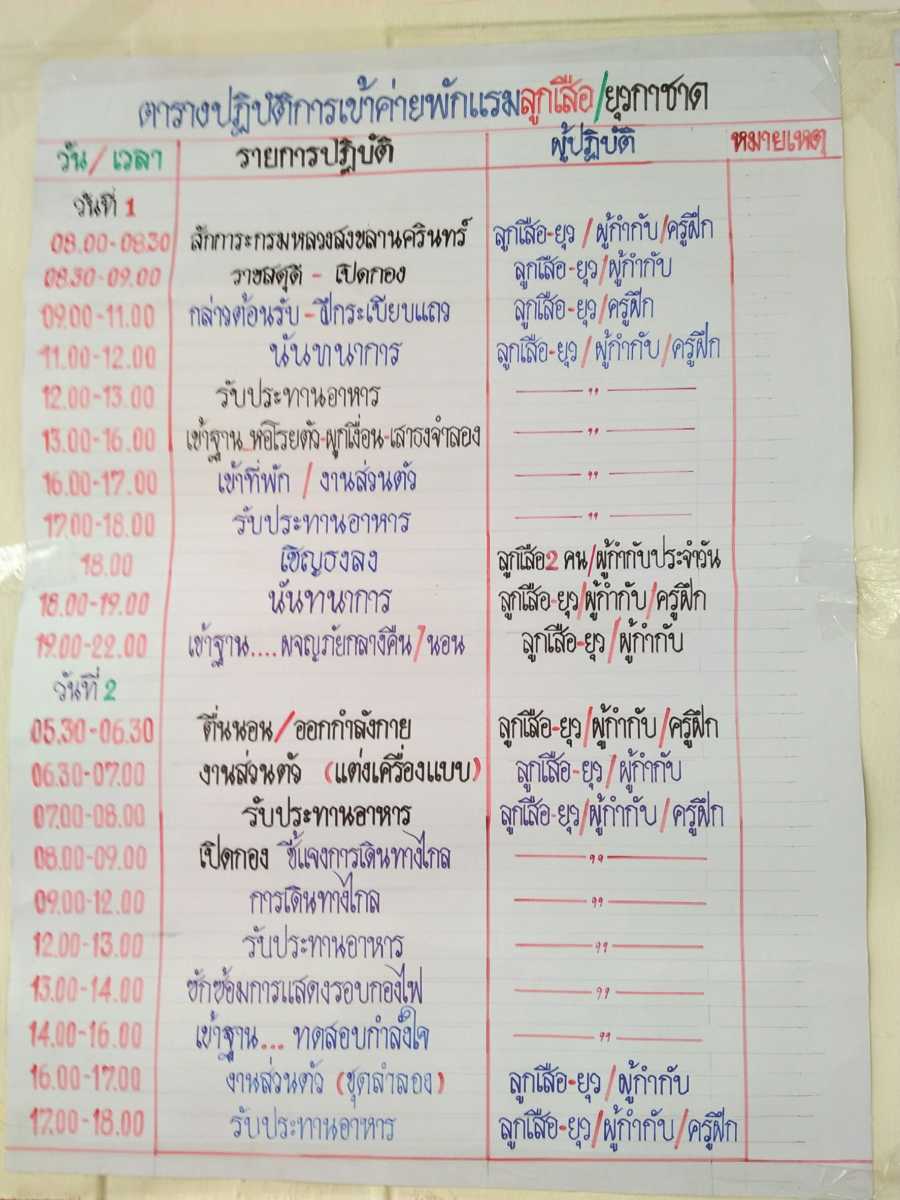 ตารางปฏิบัติการเข้าค่ายพักแรมลูกเสือ/ยุวกาชาด
วัน/เวลา รายการปฏิบัติ ผู้ปฏิบัติ หมายเหตุ
วันที่ 1
08.00-08.30 สักการะกรมหลวงสงขลานครินทร์ ลูกเสือ-ยุว/ผู้กำกับ/ครูฝึก
08.30-09.00 ราชสดุดี - เปิดกอง ลูกเสือ-ยุว/ผู้กำกับ
09.00-11.00 กล่าวต้อนรับ-ฝึกระเบียบแถว ลูกเสือ-ยุว/ครูฝึก
11.00-12.00 นันทนาการ ลูกเสือ-ยุว/ผู้กำกับ/ครูฝึก
12.00-13.00 รับประทานอาหาร — ,, —
13.00-16.00 เข้าฐาน หอโรยตัว-ผูกเงื่อน-เสาธงจำลอง — ,, —
16.00-17.00 เข้าที่พัก / งานส่วนตัว — ,, —
17.00-18.00 รับประทานอาหาร — ,, —
18.00 เชิญธงลง ลูกเสือ2 คน/ผู้กำกับประจำวัน
18.00-19.00 นันทนาการ ลูกเสือ-ยุว/ผู้กำกับ/ครูฝึก
19.00-22.00 เข้าฐาน....ผจญภัยกลางคืน/นอน ลูกเสือ-ยุว/ผู้กำกับ
วันที่ 2
05.30-06.30 ตื่นนอน/ออกกำลังกาย ลูกเสือ-ยุว/ผู้กำกับ/ครูฝึก
06.30-07.00 งานส่วนตัว (แต่งเครื่องแบบ) ลูกเสือ-ยุว/ผู้กำกับ
07.00-08.00 รับประทานอาหาร ลูกเสือ-ยุว/ผู้กำกับ/ครูฝึก
08.00-09.00 เปิดกอง ชี้แจงการเดินทางไกล — ,, —
09.00-12.00 การเดินทางไกล — ,, —
12.00-13.00 รับประทานอาหาร — ,, —
13.00-14.00 ซักซ้อมการแสดงรอบกองไฟ — ,, —
14.00-16.00 เข้าฐาน... ทดสอบกำลังใจ — ,, —
16.00-17.00 งานส่วนตัว (ชุดลำลอง) ลูกเสือ-ยุว/ผู้กำกับ
17.00-18.00 รับประทานอาหาร ลูกเสือ-ยุว/ผู้กำกับ/ครูฝึก